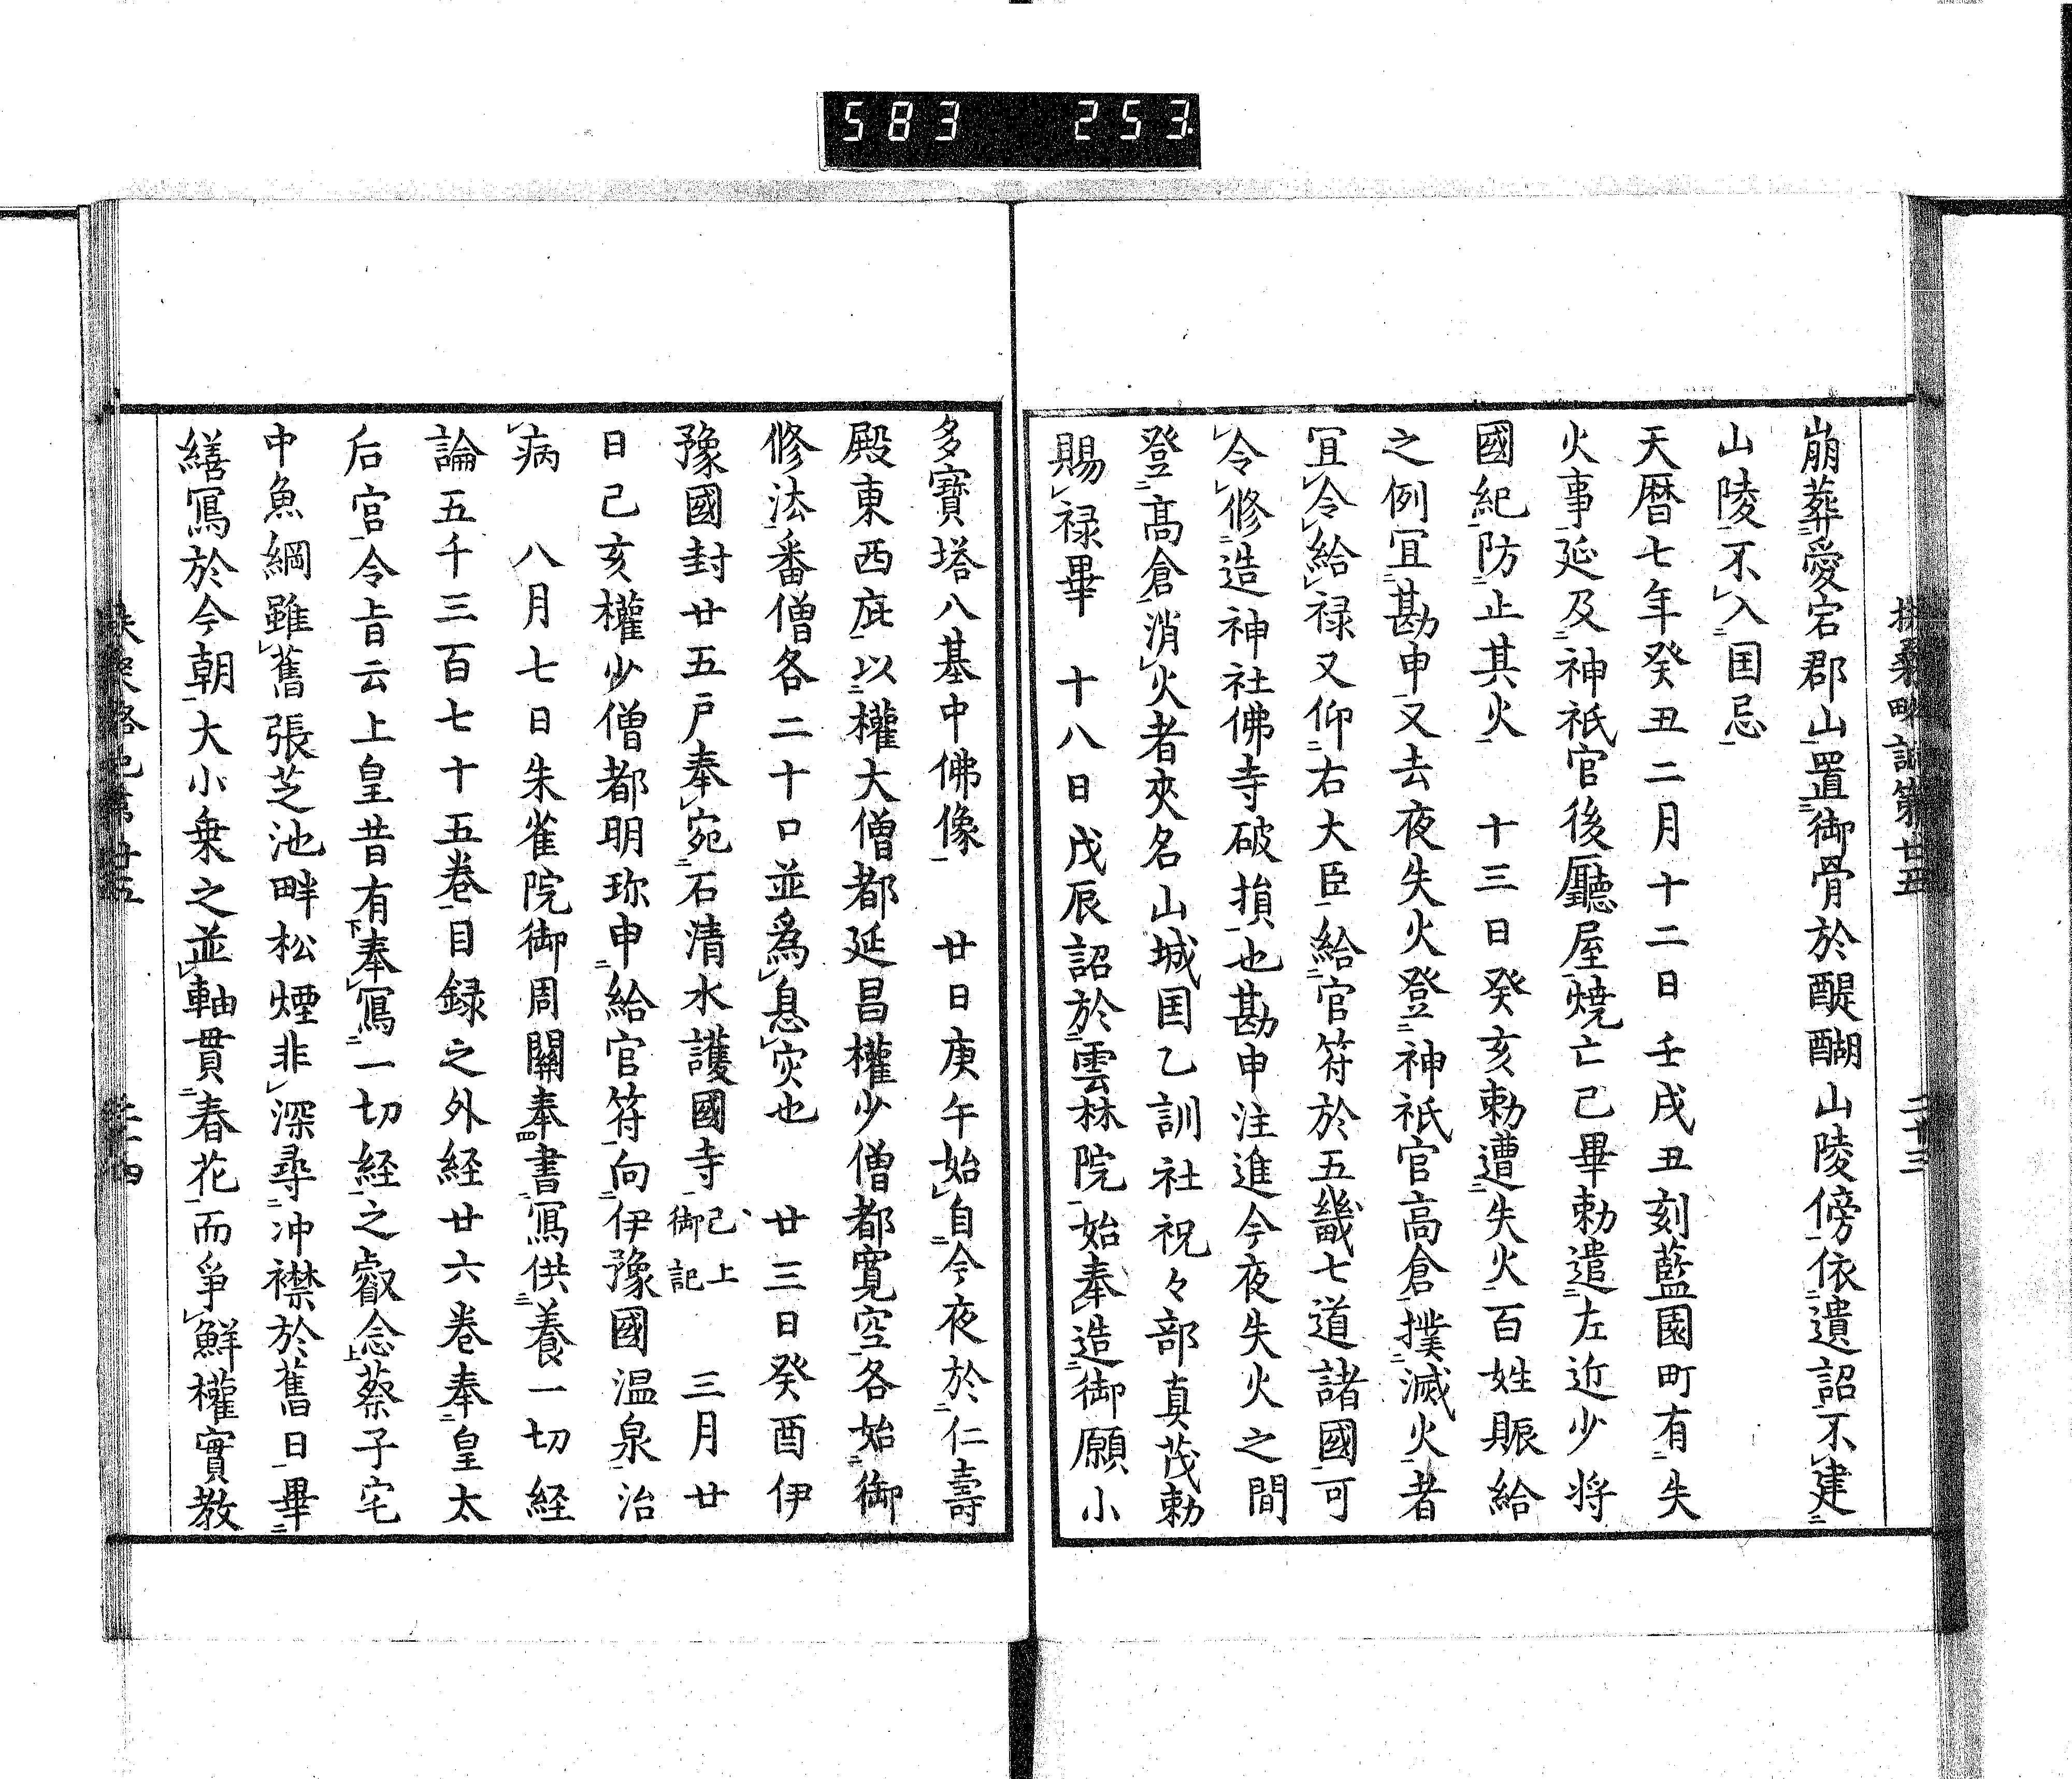 583 253
崩葬愛宕郡山置御骨於醍醐山陵傍依遺詔不建
山陵不入国忌
天暦七年癸丑二月十二日壬戌丑刻藍園町有失
火事延及神祇官後廳屋焼亡已畢勅遣左近少将
國紀防止其火 十三日癸亥勅遭失火百姓賑給
之例冝勘申又去夜失火登神祇官高倉撲滅火者
冝令給禄又仰右大臣給官符於五畿七道諸國可
令修造神社佛寺破損也勘申注進今夜失火之間
登高倉消火者夾名山城国乙訓社祝々部真茂勅
賜禄畢 十八日戊辰詔於雲林院始奉造御願小
多寶塔八基中佛像 廿日庚午始自今夜於仁壽
殿東西庇以權大僧都延昌權少僧都寛空各始御
修法番僧各二十口並為息災也 廿三日癸酉伊
豫國封廿五戸奉宛石清水護國寺已上御記 三月廿
日己亥權少僧都明珎申給官符向伊豫國温泉治
病 八月七日朱雀院御周關奉書寫供養一切経
論五千三百七十五巻目録之外経廿六巻奉皇太
后宮令旨云上皇昔有奉寫一切経之叡念蔡子宅
中魚網雖舊張芝池畔松煙非深尋冲襟於舊日畢
繕寫於今朝大小乗之並軸貫春花而爭鮮權實教